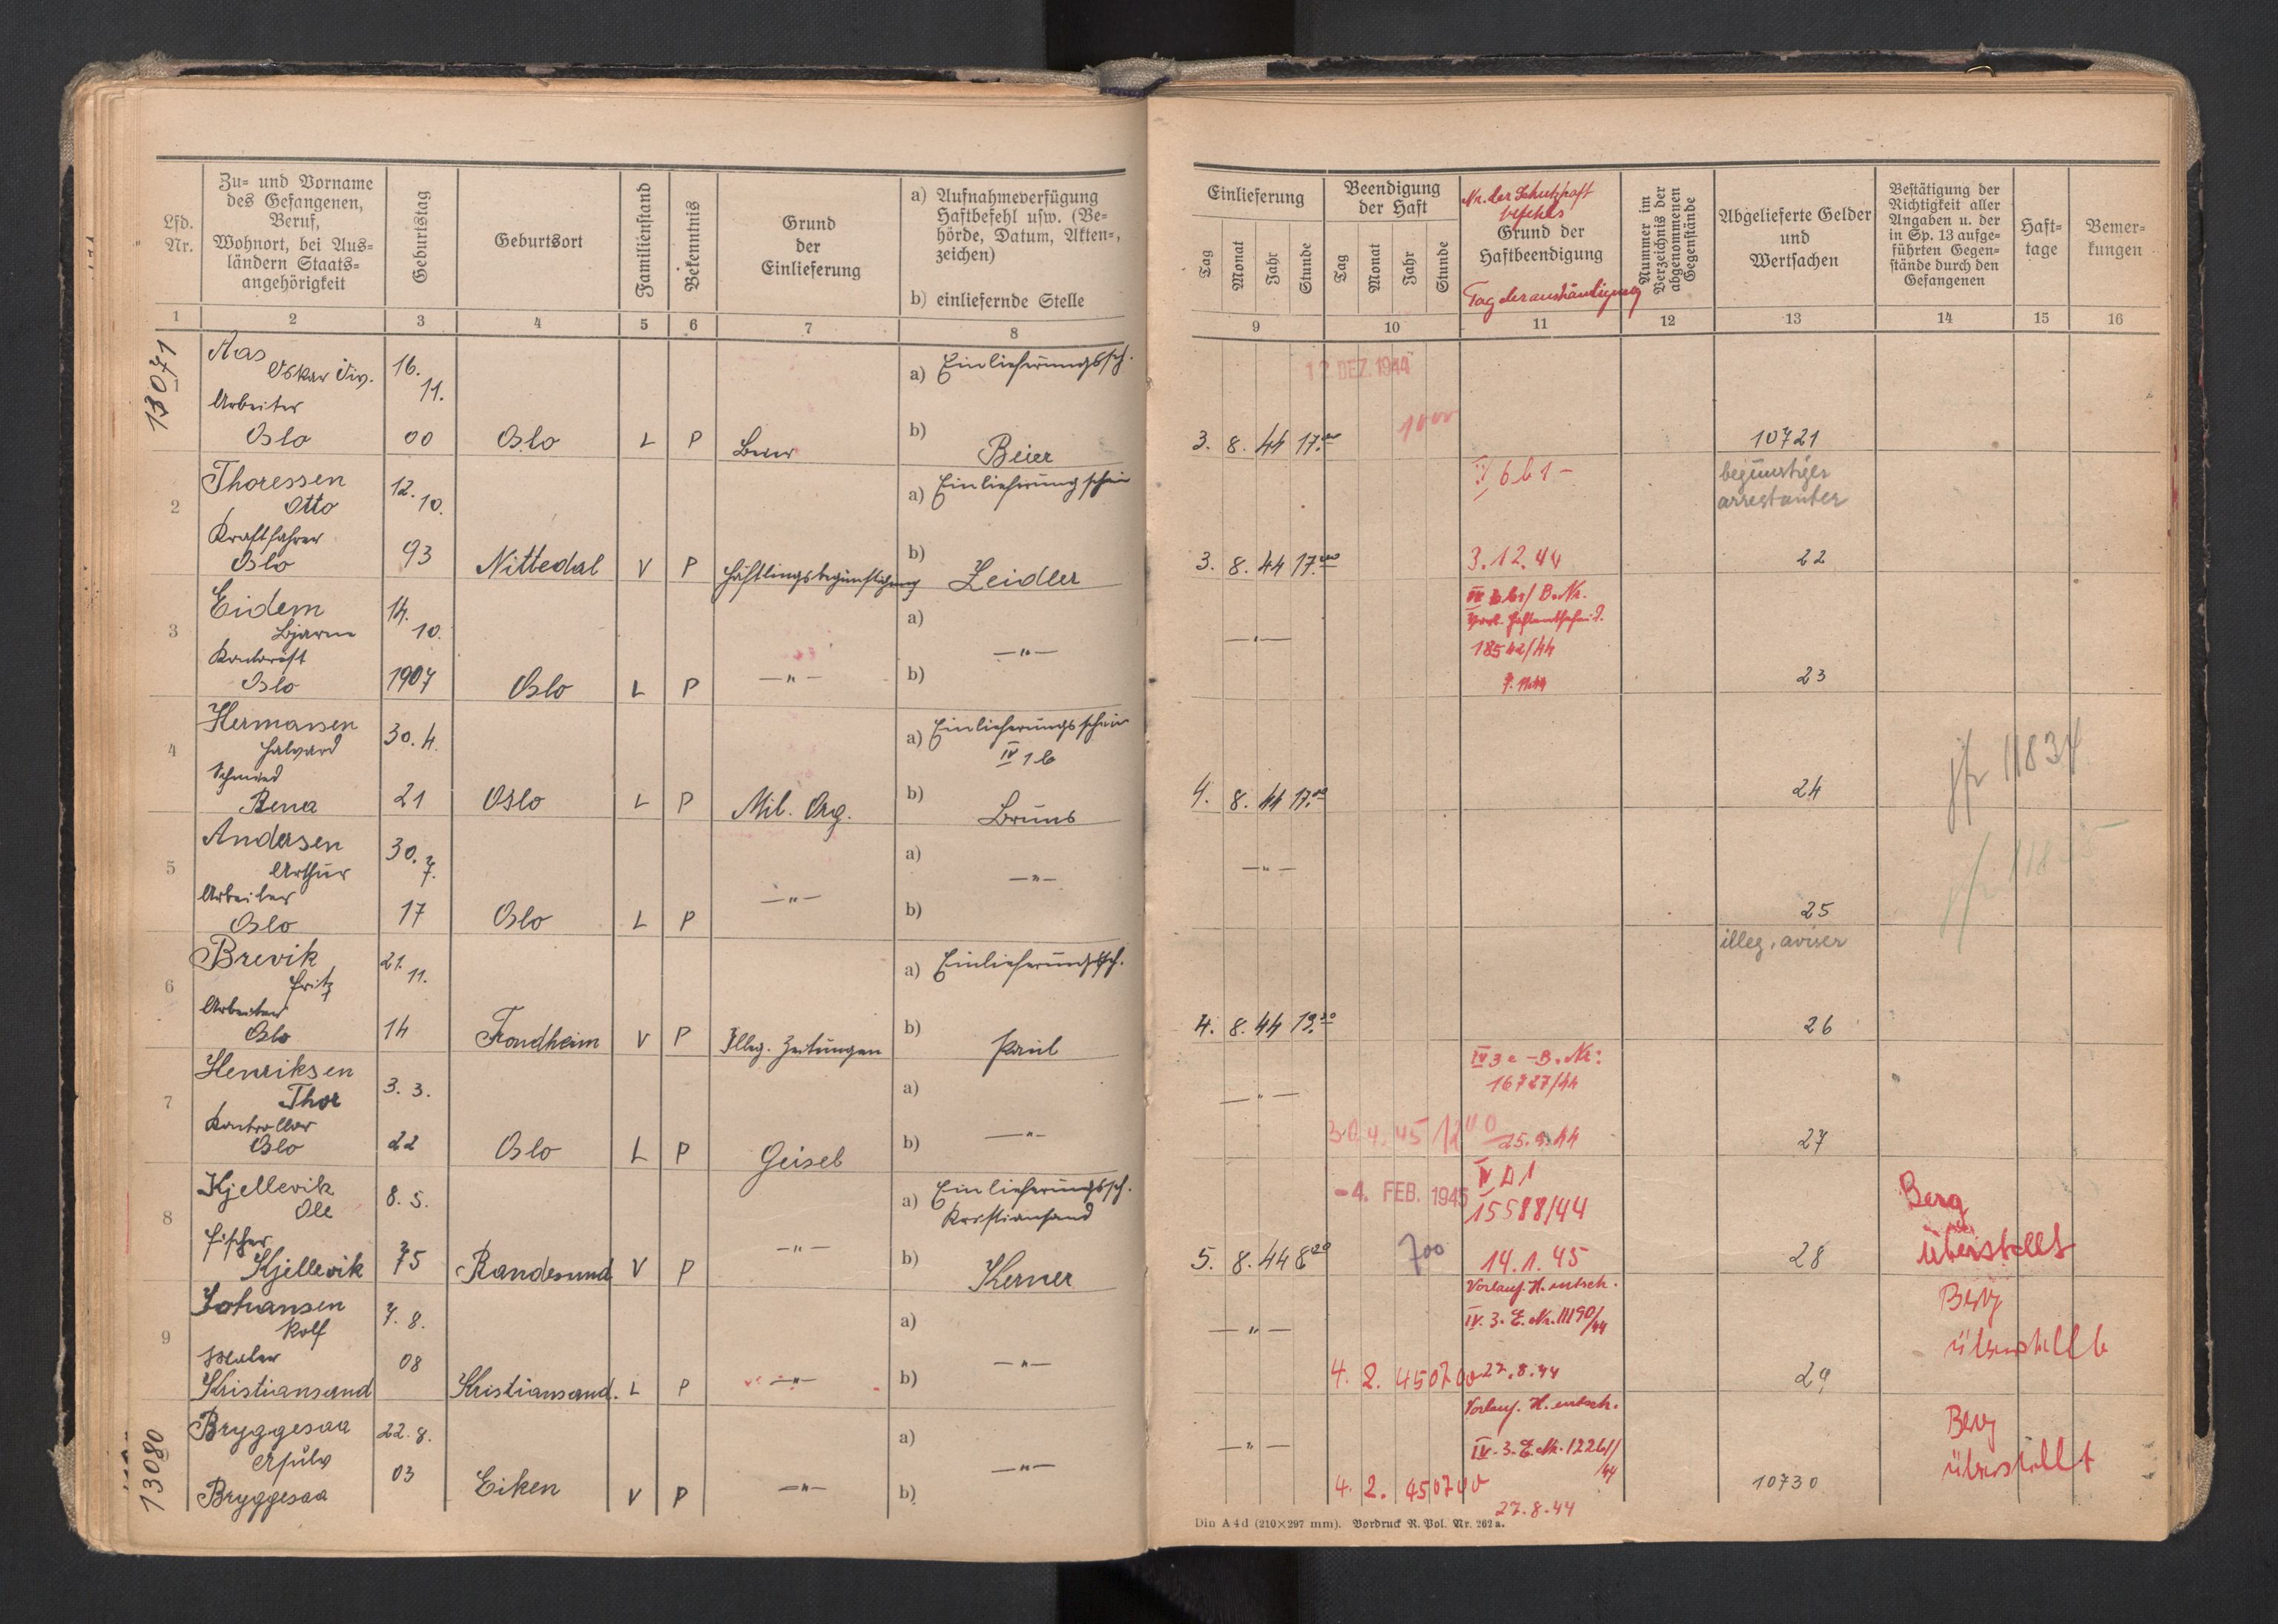 Lfd. Nr.
Zu- und Vorname
des Gefangenen,
Beruf,
Wohnort, bei Aus-
ländern Staats-
angehörigkeit
Geburtstag
Geburtsort
Familienstand
Bekenntnis
Grund
der
Einlieferung
a) Aufnahmeverfügung
Haftbefehl usw. (Be-
hörde, Datum, Akten-,
zeichen)
b) einliefernde Stelle
1 2 3 4 5 6 7 8
13071
Aas
Oskar
16.
11.
a) Einlieferungssch.
Arbeiter
Oslo 00 Oslo L P b) Beier
2
Thoressen
Otto
12.
10.
a) Einlieferungschein
Kraftfahrer
Oslo 93 Nittedal V P Häftlingsbegünstigung b) Zeidler
3
Eidem
Bjarne
14.
10.
a)
—"—
Kontorist
Oslo 1907 Oslo L P —"— b)
4
Hermansen
Halvard
30. 4.
a) Einlieferungsschein
IV 1 b
Schmied
Rena 21 Oslo L P Mil. Org. b) Bruns
5
Andersen
Arthur
30. 7.
a)
—"—
Arbeiter
Oslo 17 Oslo L P —"— b)
6
Brevik
Fritz
21.
11.
a) Einlieferungssch.
Arbeiter
Oslo 14 Trondheim V P Illeg. Zeitungen b) Paul
7
Henriksen
Thor
3. 3.
a)
Kontrollør
Oslo 22 Oslo L P Geisel b) —"—
8
Kjellevik
Ole
8. 5.
a) Einlieferungssch.
Kristiansand
Fischer
Kjellevik 75 Randesund V P —"— b) Kerner
9
Johansen
Rolf
7. 8.
a)
—"—
Maler
Kristiansand 08 Kristiansand. L P —"— b)
13080
Bryggesaa
22. 8.
a)
—"—
Bryggesaa 03 Eiken V P —"— b)
Einlieferung
Tag Monat Jahr Stunde
Beendigung
der Haft
Tag Monat Jahr Stunde
Nr. der Schutzhaft
befehls
Grund der
Haftbeendigung
Tag der aushändigung
Nummer im
Verzeichnis der
abgenommenen
Gegenstände
Abgelieferte Gelder
und
Wertsachen
Bestätigung der
Richtigkeit aller
Angaben u. der
in Sp. 13 aufge-
führten Gegen-
stände durch den
Gefangenen
Haft-
tage
Bemer-
kungen
9 10 11 12 13 14 15 16
12. DEZ. 1944
10 00
3. 8. 44 17.00 10721
begünstiger
arrestanter
3. 8. 44 17.00 3. 12. 44 22
B. Nr.
—"—
18542/44
23
jfr 11834
4. 8. 44 17.00 24
—"—
25
illeg. aviser
4. 8. 44 19.30 26
IV 3 e - B. Nr:
16727/44
—"—
30 4. 45 12 00 25. 9. 44 27
- 4. FEB. 1945
15588/44
Berg
überstellt
5. 8. 44 8 20 700 14. 1. 45 28
Vorlauf. H. entsch.
IV. 3. E. Nr. 11190/44
Berg
überstellt
—"—
4. 2. 45 07 00 27. 8. 44 29
Vorlauf. H. entsch.
Berg
überstellt
—"— IV. 3. E. Nr. 12261/44
4. 2. 45 07 00 10730
27. 8. 44
Din A 4 d (210×297 mm). Vordruck R. Pol. Nr. 262 a.